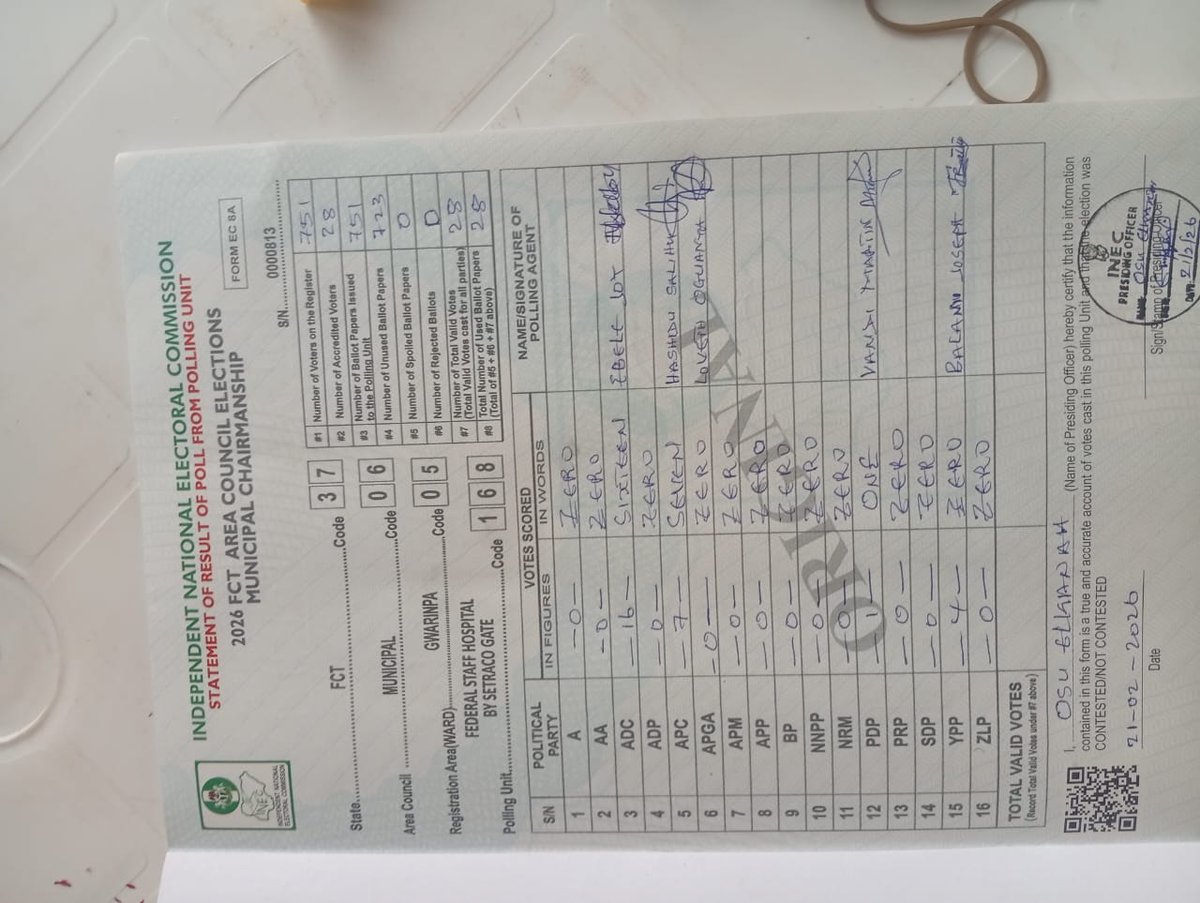 INDEPENDENT NATIONAL ELECTORAL COMMISSION
STATEMENT OF RESULT OF POLL FROM POLLING UNIT
2026 FCT AREA COUNCIL ELECTIONS
MUNICIPAL CHAIRMANSHIP
FORM EC 8A
INDEPENDENT NATIONAL ELECTORAL COMMISSION
S/N 0000813
State FCT Code 3 7
Area Council MUNICIPAL Code 0 6
Registration Area(WARD) GWARINPA Code 0 5
FEDERAL STAFF HOSPITAL
BY SETRACO GATE
Polling Unit Code 1 6 8
#1 Number of Voters on the Register 751
#2 Number of Accredited Voters 28
#3 Number of Ballot Papers Issued to the Polling Unit 751
#4 Number of Unused Ballot Papers 723
#5 Number of Spoiled Ballot Papers 0
#6 Number of Rejected Ballots 0
#7 Number of Total Valid Votes (Total Valid Votes cast for all parties) 28
#8 Total Number of Used Ballot Papers (Total of #5 + #6 + #7 above) 28
S/N POLITICAL PARTY VOTES SCORED IN FIGURES IN WORDS NAME/SIGNATURE OF POLLING AGENT
1 A —0— ZERO
2 AA —0— ZERO
3 ADC 16— SIXTEEN EBELE JOY
4 ADP —0— ZERO
5 APC —7— SEVEN HASHIDU SALIHU
6 APGA —0— ZERO LOVETH OGUANYA
7 APM —0— ZERO
8 APP —0— ZERO
9 BP —0— ZERO
10 NNPP —0— ZERO
11 NRM —0— ZERO
12 PDP —1— ONE VANDI MARTIN
13 PRP —0— ZERO
14 SDP —0— ZERO
15 YPP —4— ZERO BALAMI JOSEPH
16 ZLP —0— ZERO
TOTAL VALID VOTES
(Record Total Valid Votes under #7 above)
ORIGINAL
I, OSU ELKANAH (Name of Presiding Officer) hereby certify that the information
contained in this form is a true and accurate account of votes cast in this polling Unit and that the election was
CONTESTED/NOT CONTESTED
21-02-2026
Date
Sign/Stamp of Presiding Officer
INEC
PRESIDING OFFICER